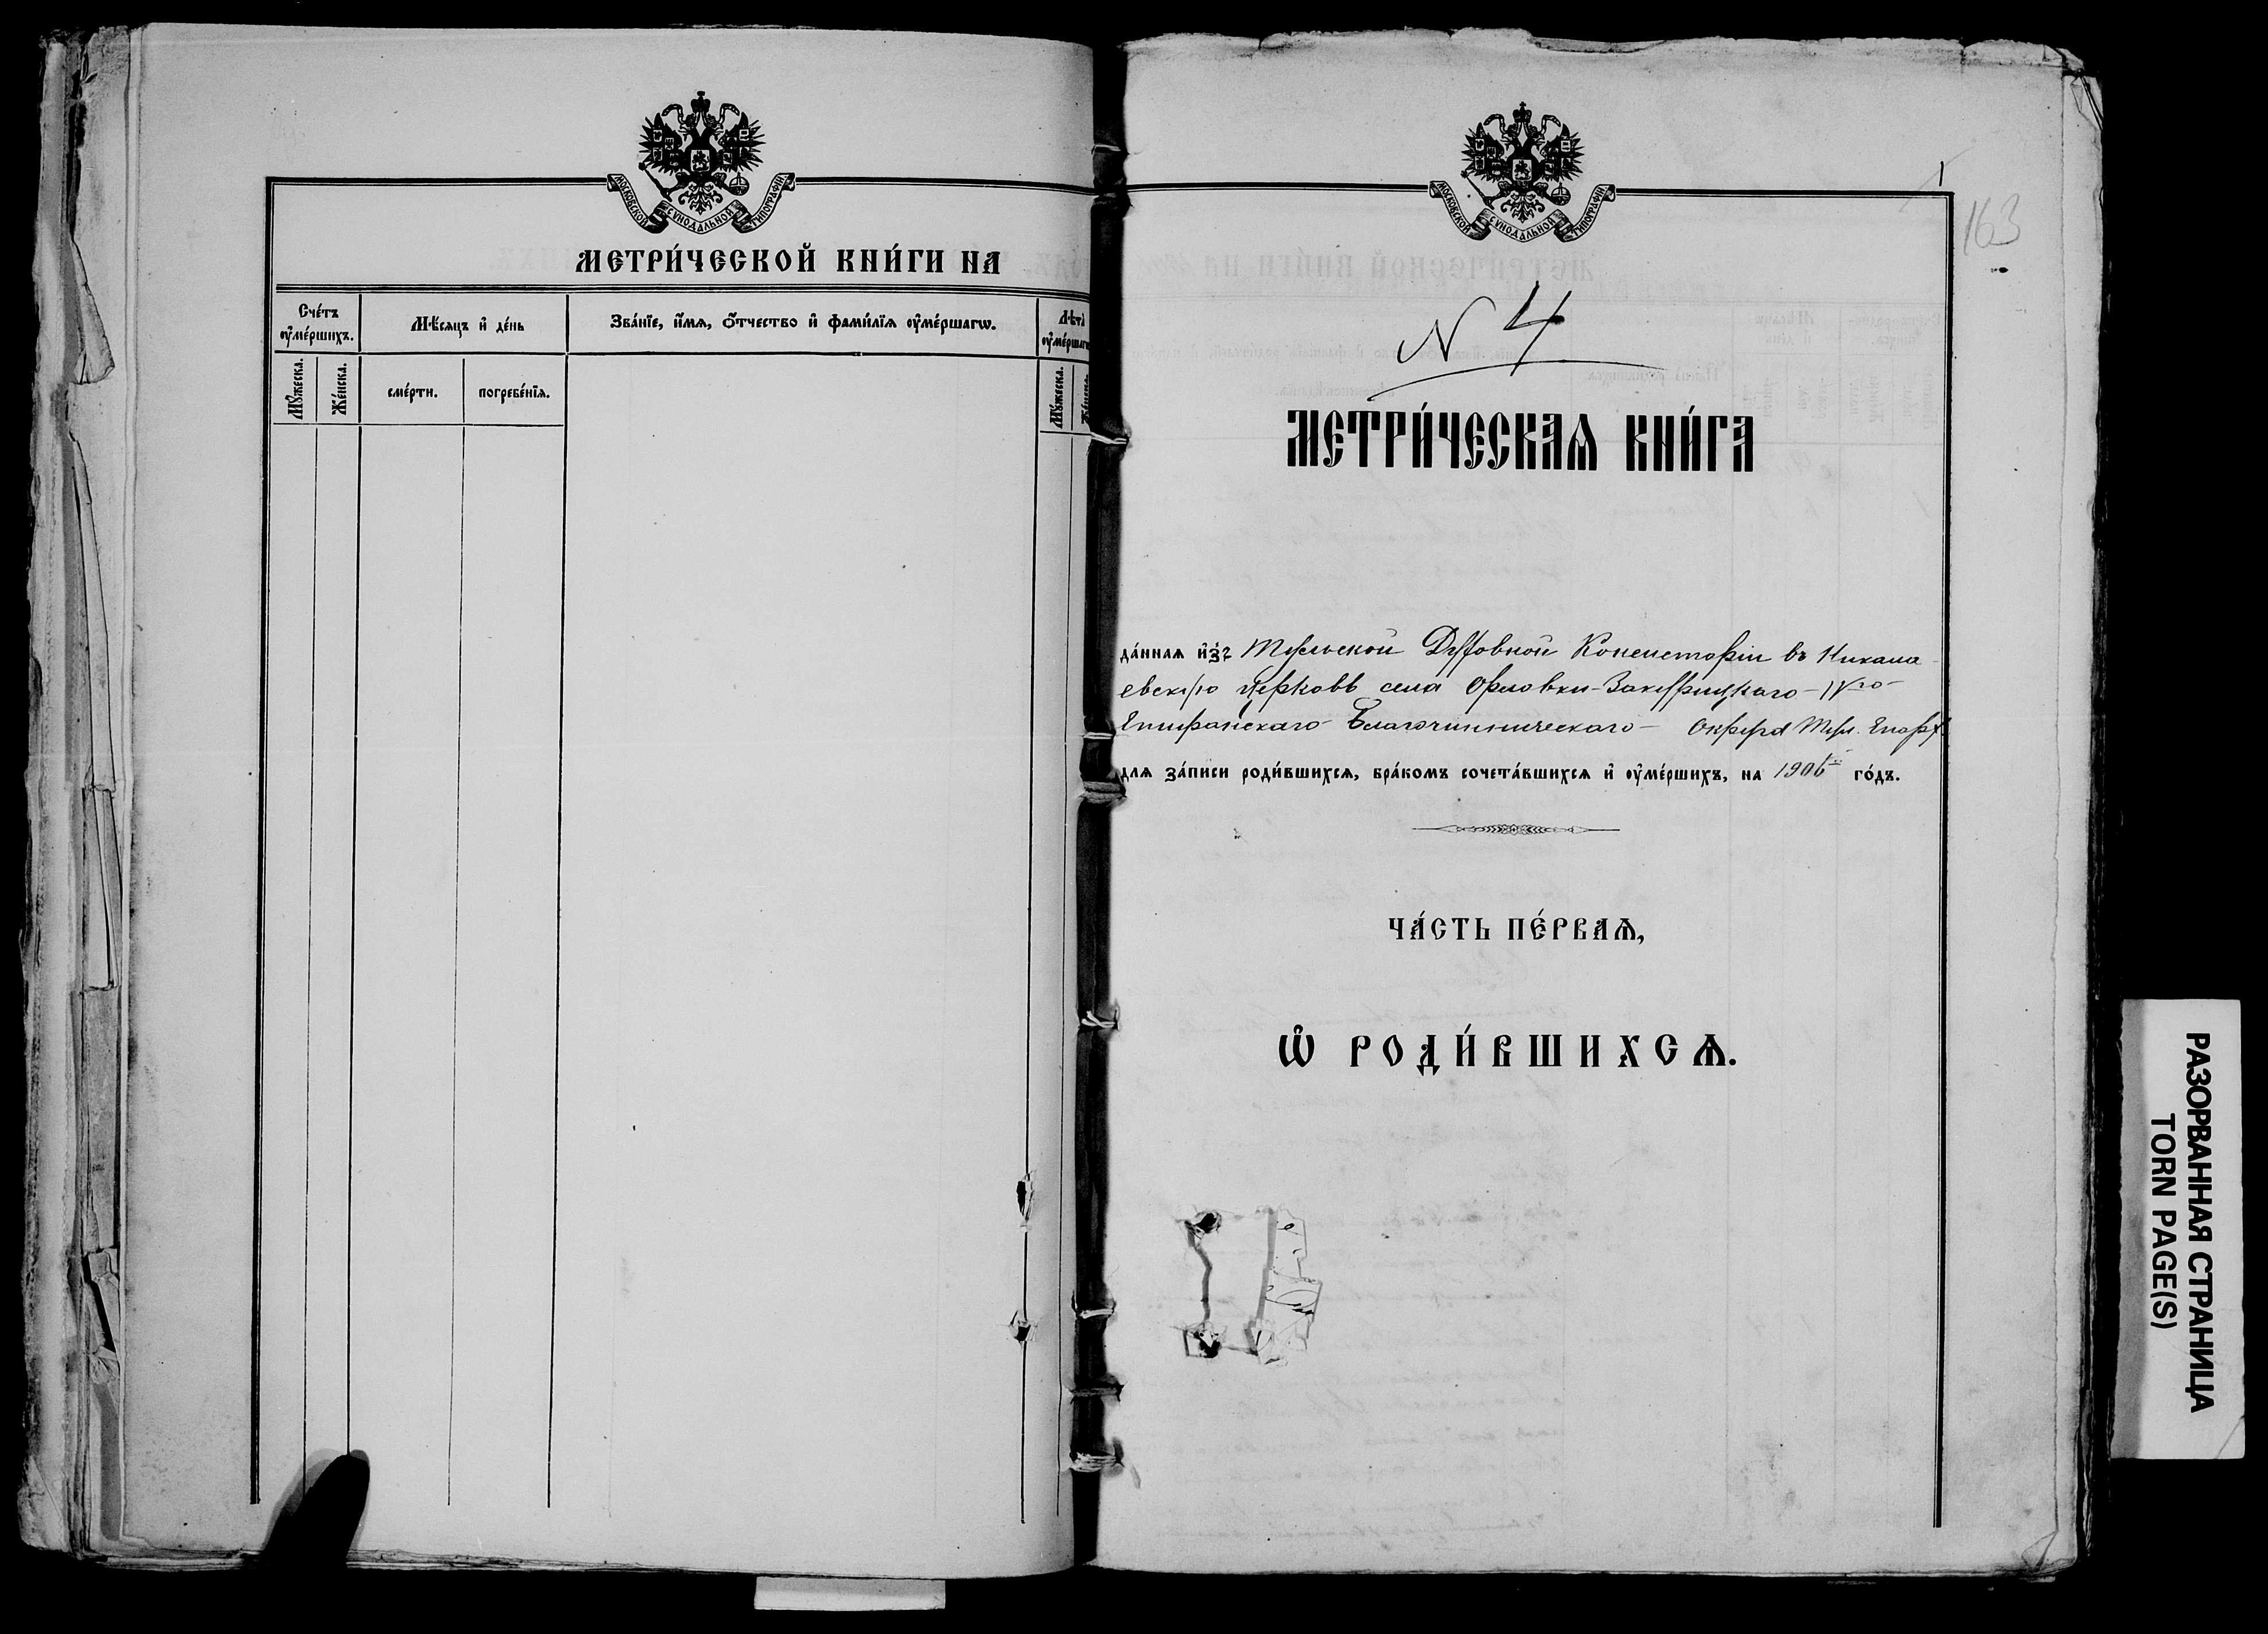 МОСКОВСКОЙ СѴНОДАЛЬНОЙ ТИПОГРАФІИ
МЕТРИ́ЧЕСКОЙ КНИ́ГИ НА
Сче́тъ ᲂу҆ме́ршихъ.
Мѣ́сяцъ и҆ де́нь
Зва́нїе, и҆́мѧ, ѻ҆́тчество и҆ фами́лїѧ ᲂу҆ме́ршагѡ.
Лѣта̀ ᲂу҆ме́рша
Мꙋ́жеска.
Же́нска.
сме́рти.
погребе́нїѧ.
Мꙋ́жеска.
МОСКОВСКОЙ СѴНОДАЛЬНОЙ ТИПОГРАФІИ
1
163
N 4
МЕТРИ́ЧЕСКАѦ КНИ́ГА
да́ннаѧ и҆зъ Тульской Духовной Консисторіи въ Никола
евскую церковь села Орловки-Закурицкаго - IVго
Епифанскаго Благочинническаго - Округа Тул. Епарх.
для за́писи роди́вшихсѧ, бра́комъ сочета́вшихсѧ и҆ ᲂу҆ме́ршихъ, на 1906й го́дъ.
ЧА́СТЬ ПЕ́РВАѦ,
Ѡ҆ РОДИ́ВШИХСѦ.
РАЗОРВАННАЯ СТРАНИЦА
TORN PAGE(S)